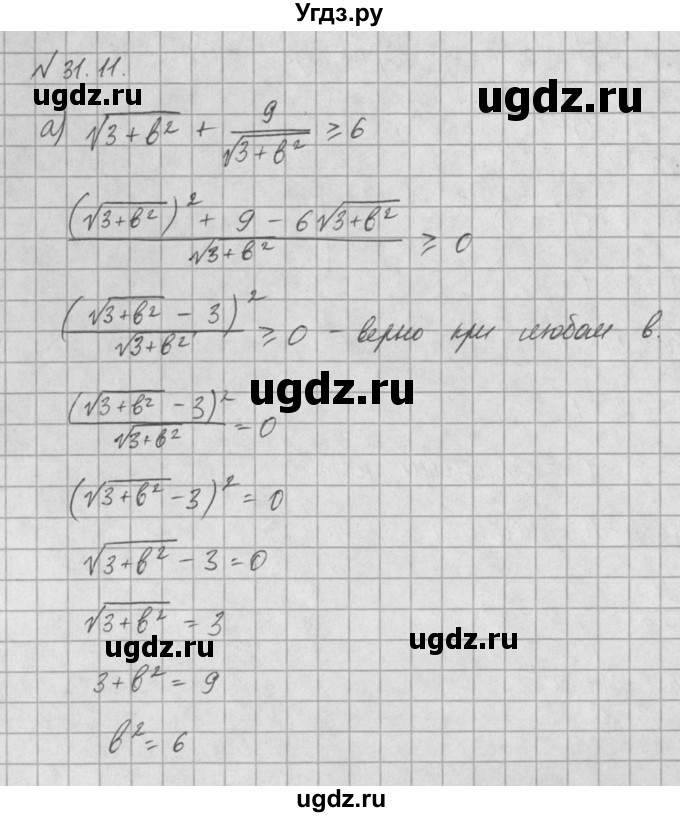 Угдз.ру
N 31.11.
ugdz.ru ugdz.ru
а) √(3+в²) + 9/√(3+в²) ≥ 6
((√(3+в²))² + 9 - 6√(3+в²))/√(3+в²) ≥ 0
(√(3+в²) - 3)²/√(3+в²) ≥ 0 - верно при любом в.
ugdz.ru
(√(3+в²) - 3)²/√(3+в²) = 0
(√(3+в²) - 3)² = 0
√(3+в²) - 3 = 0
√(3+в²) = 3
ugdz.ru ugdz.ru
3+в² = 9
в² = 6
ugdz.ru